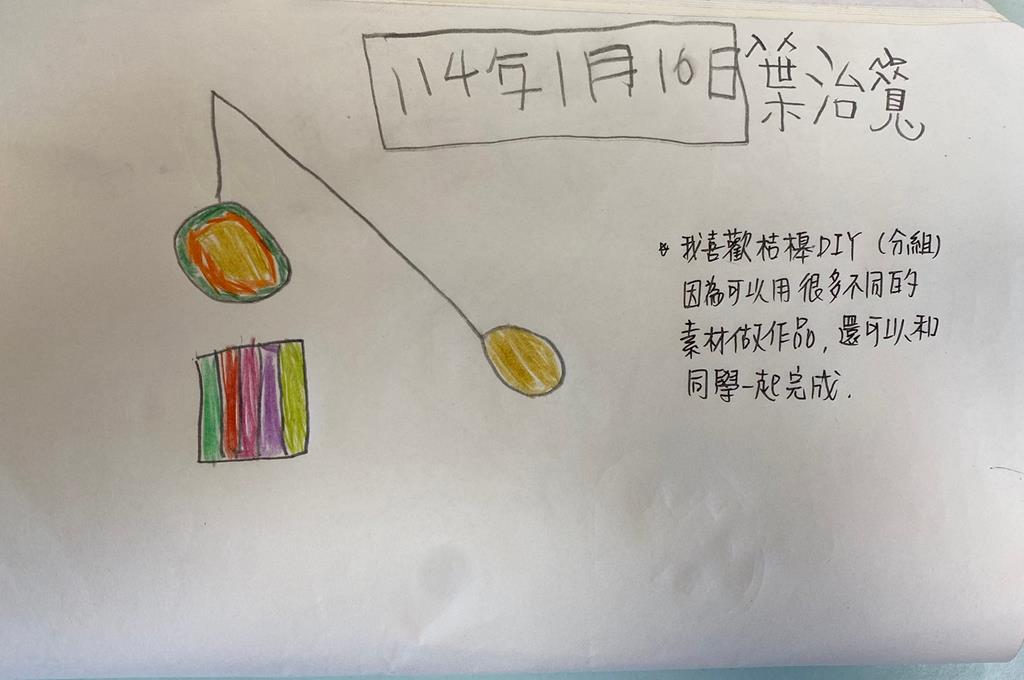 114年1月16日 葉治覓
* 我喜歡桔槔DIY (分組)
因為可以用很多不同的
素材做作品, 還可以和
同學一起完成.